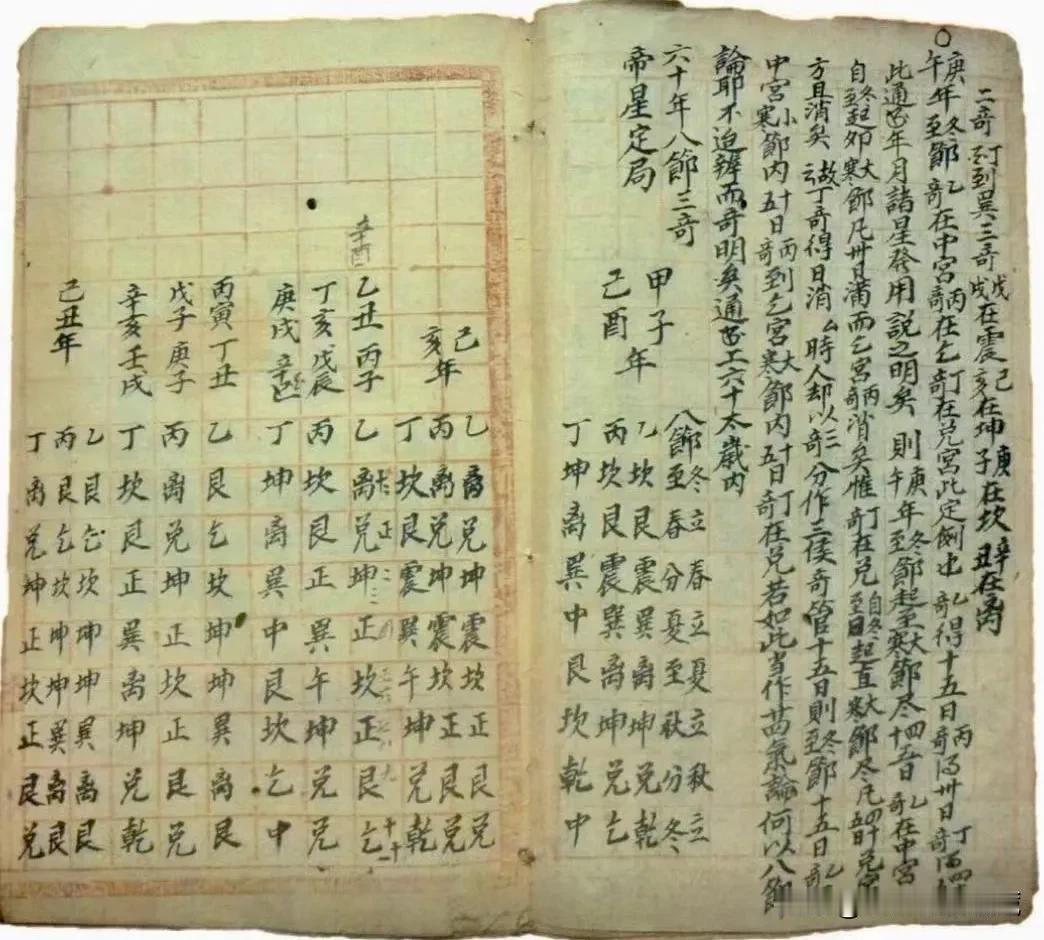 二奇丁到巽三奇戊戌在震己亥在坤庚子在坎辛丑在离
庚午年冬至節乙奇在中宮丙奇在乞丁奇在兌宮此定例也乙奇得十五日丙奇得卅日丁奇得四
此通書年月諸星發用説之明矣則庚午年冬至節起至大寒節尽四十五日乙奇在中宮
自冬至起夘大寒節凡卅日满而乞宮丙奇消矣惟丁奇在兌自冬至日起直大寒節尽凡四十五日兌宮
方且消矣故云丁奇得日消么時人却以三奇分作三候奇管十五日則冬至節十五日乙奇
中宮小寒節内十五日丙奇到乞宮大寒節内十五日丁奇在兌若如此当作苗氣論何以八節
論耶不迨辨而奇明矣通書工六十太歲内
六十年八節三奇
帝星定局
甲子年
己酉
八節冬至立春春分立夏夏至立秋秋分立冬
乙坎艮震巽离坤兌乾
丙坎艮震巽离坤兌乞
丁坤离巽中艮坎乾中
己亥年
乙离兌坤震坎正艮兌
丙离兌坤震坎正艮兌
丁坎艮震巽午坤兌乾
辛酉
乙丑丙子
乙离兌坤正坎正艮乞
丁亥戊辰
丙坎艮正巽午坤兌兌
庚戌辛巳
丁坤离巽中艮坎乞中
丙寅丁丑
乙艮乞坎坤坤巽离艮
戊子庚子
丙离兌坤正坎正艮兌
辛亥壬戌
丁坎艮正巽离坤兌乾
己丑年
乙艮乞坎坤坤巽离艮
丙艮乞坎坤坤巽离艮
丁离兌坤正坎正艮兌